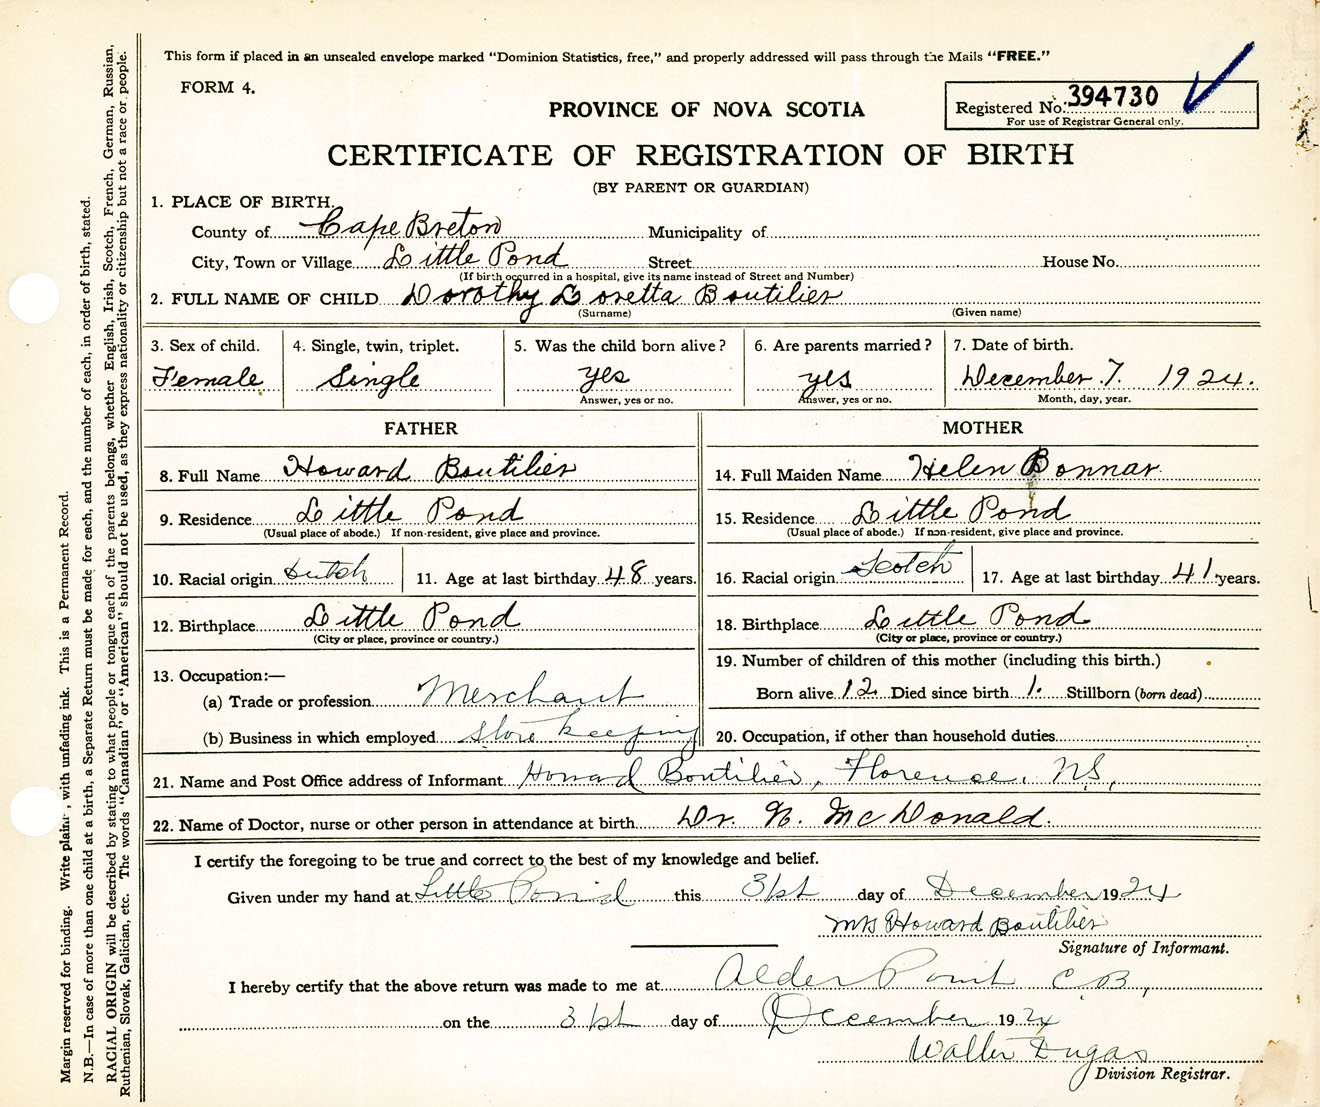 This form if placed in an unsealed envelope marked "Dominion Statistics, free," and properly addressed will pass through the Mails "FREE."
FORM 4.
Registered No. 394730
For use of Registrar General only.
PROVINCE OF NOVA SCOTIA
CERTIFICATE OF REGISTRATION OF BIRTH
(BY PARENT OR GUARDIAN)
1. PLACE OF BIRTH.
County of Cape Breton Municipality of
City, Town or Village Little Pond Street House No.
(If birth occurred in a hospital, give its name instead of Street and Number)
2. FULL NAME OF CHILD Dorothy Loretta Boutilier
(Surname) (Given name)
3. Sex of child. 4. Single, twin, triplet. 5. Was the child born alive? 6. Are parents married? 7. Date of birth.
Female Single yes yes December 7. 1924.
Answer, yes or no. Answer, yes or no. Month, day, year.
FATHER MOTHER
8. Full Name Howard Boutilier 14. Full Maiden Name Helen Bonnar
9. Residence Little Pond 15. Residence Little Pond
(Usual place of abode.) If non-resident, give place and province. (Usual place of abode.) If non-resident, give place and province.
10. Racial origin Dutch 11. Age at last birthday 48 years. 16. Racial origin Scotch 17. Age at last birthday 41 years.
12. Birthplace Little Pond 18. Birthplace Little Pond
(City or place, province or country.) (City or place, province or country.)
13. Occupation:— 19. Number of children of this mother (including this birth.)
(a) Trade or profession Merchant Born alive 12 Died since birth 1. Stillborn (born dead)
(b) Business in which employed store keeping 20. Occupation, if other than household duties
21. Name and Post Office address of Informant Howard Boutilier, Florence, NS,
22. Name of Doctor, nurse or other person in attendance at birth Dr. N. McDonald.
I certify the foregoing to be true and correct to the best of my knowledge and belief.
Given under my hand at Little Pond this 31st day of December 1924
Mrs Howard Boutilier
Signature of Informant.
I hereby certify that the above return was made to me at Alder Point C.B,
on the 31st day of December 1924
Walter Dugas
Division Registrar.
Margin reserved for binding. Write plainly, with unfading ink. This is a Permanent Record.
N.B.—In case of more than one child at a birth, a Separate Return must be made for each, and the number of each, in order of birth, stated.
RACIAL ORIGIN will be described by stating to what people or tongue each of the parents belongs, whether English, Irish, Scotch, French, German, Russian,
Ruthenian, Slovak, Galician, etc. The words "Canadian" or "American" should not be used, as they express nationality or citizenship but not a race or people.